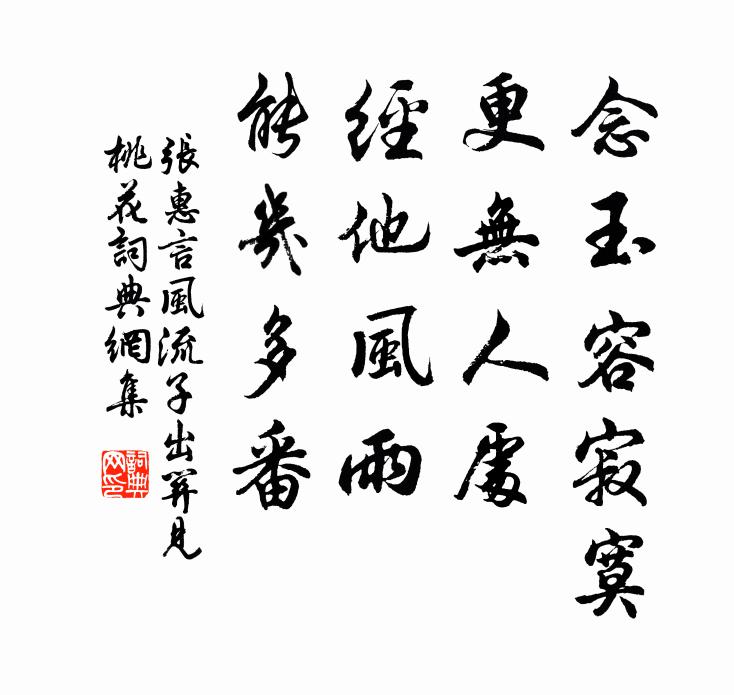 念玉容寂寞
更無人處
經他風雨
能幾多番
張惠言風流子出關見
桃花詞典網集
詞典網印